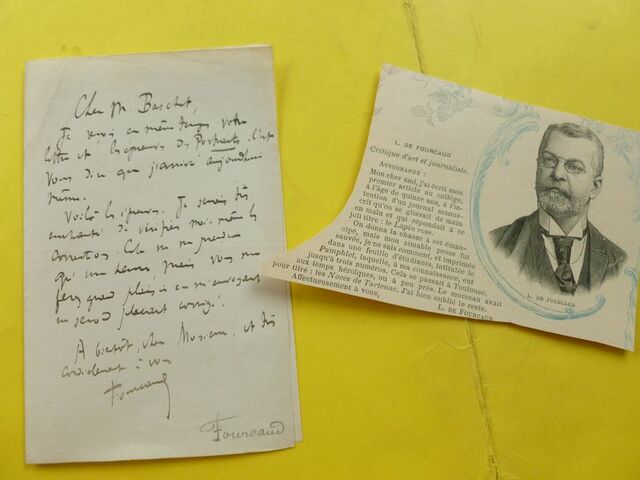 Cher M. Baschet,
Je reçois en même temps votre
lettre et les épreuves des Portraits. C'est
vous dire que j'arrive aujourd'hui
même.
Voilà les épreuves. Je serais très
de vérifier moi-même les
corrections. Cela ne me prendra
qu'une heure, mais vous me
ferez grand plaisir en m'envoyant
un second placard corrigé.
A bientôt, cher Monsieur, et très
cordialement à vous
Fourcaud
Fourcaud
L. DE FOURCAUD
Critique d'art et journaliste.
AUTOGRAPHE :
Mon cher ami, j'ai écrit mon
premier article au collège,
à l'âge de quinze ans, à l'in-
tention d'un journal manus-
crit qu'on se glissait de main
en main et qui répondait à ce
joli titre : le Lapin rose.
On donna la chasse à cet éman-
cipé, mais mon aimable prose fut
sauvée, je ne sais comment, et imprimée
dans une feuille d'étudiants, intitulée le
Pamphlet, laquelle, à ma connaissance, eut
jusqu'à trois numéros. Cela se passait à Toulouse,
aux temps héroïques, ou à peu près. Le morceau avait
pour titre : les Noces de Tartenac. J'ai bien oublié le reste.
Affectueusement à vous,
L. DE FOURCAUD
L. DE FOURCAUD